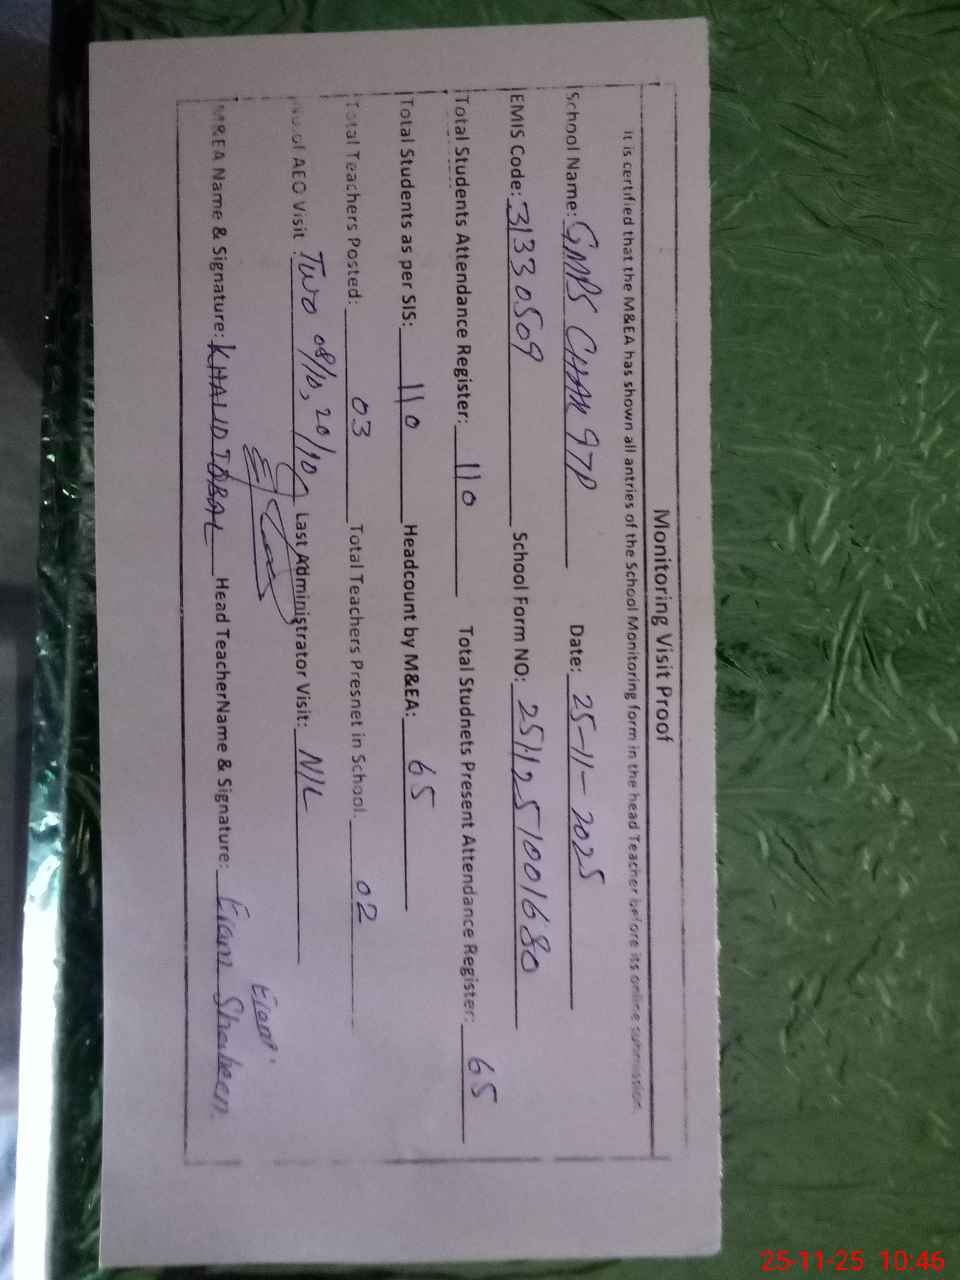 Monitoring Visit Proof
It is certified that the M&EA has shown all antries of the School Monitoring form in the head Teacher before its online submission.
School Name: GMPS CHAK 97P Date: 25-11-2025
EMIS Code: 31330509 School Form NO: 2511251001680
Total Students Attendance Register: 110 Total Studnets Present Attendance Register: 65
Total Students as per SIS: 110 Headcount by M&EA: 65
Total Teachers Posted: 03 Total Teachers Presnet in School. 02
No of AEO Visit : Two 08/10, 20/10 Last Administrator Visit: NIL
M&EA Name & Signature: KHALID IQBAL Head TeacherName & Signature: Shaheen
25-11-25 10:46